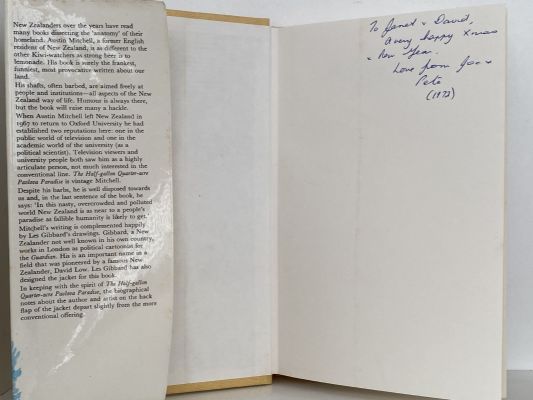 New Zealanders over the years have read
many books dissecting the 'anatomy' of their
homeland. Austin Mitchell, a former English
resident of New Zealand, is as different to the
other Kiwi-watchers as strong beer is to
lemonade. His book is surely the frankest,
funniest, most provocative written about our
land.
His shafts, often barbed, are aimed freely at
people and institutions—all aspects of the New
Zealand way of life. Humour is always there,
but the book will raise many a hackle.
When Austin Mitchell left New Zealand in
1967 to return to Oxford University he had
established two reputations here: one in the
public world of television and one in the
academic world of the university (as a
political scientist). Television viewers and
university people both saw him as a highly
articulate person, not much interested in the
conventional line. The Half-gallon Quarter-acre
Pavlova Paradise is vintage Mitchell.
Despite his barbs, he is well disposed towards
us and, in the last sentence of the book, he
says: 'In this nasty, overcrowded and polluted
world New Zealand is as near to a people's
paradise as fallible humanity is likely to get.'
Mitchell's writing is complemented happily
by Les Gibbard's drawings. Gibbard, a New
Zealander not well known in his own country,
works in London as political cartoonist for
the Guardian. His is an important name in a
field that was pioneered by a famous New
Zealander, David Low. Les Gibbard has also
designed the jacket for this book.
In keeping with the spirit of The Half-gallon
Quarter-acre Pavlova Paradise, the biographical
notes about the author and artist on the back
flap of the jacket depart slightly from the more
conventional offering.
To Janet & David,
a very happy Xmas
& New Year.
Love from Joe &
Pete
(1972)